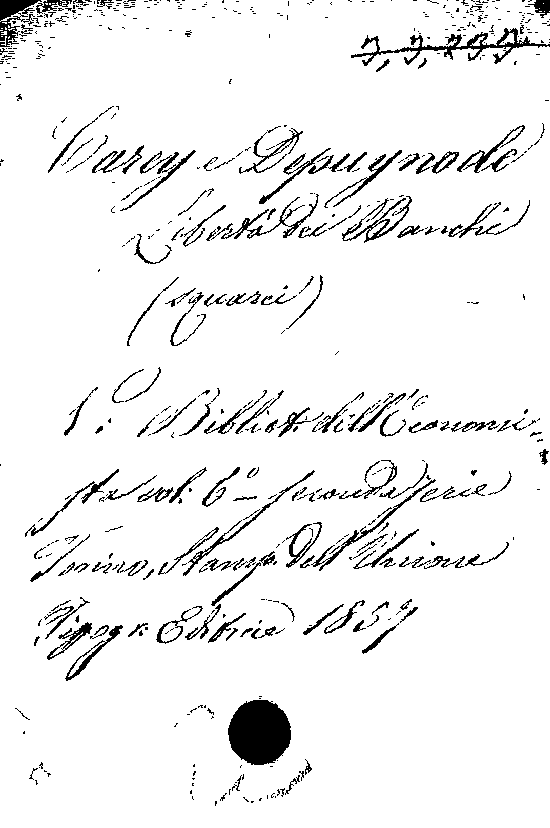 7, 7, 237.
Carey e Depuynode
Libertà dei Banchi
(squarci)
1.° Bibliot. dell'Economi-
sta vol: 6° - seconda serie
Torino, Stamp. dell'Unione
Tipogr. Editrice 1857